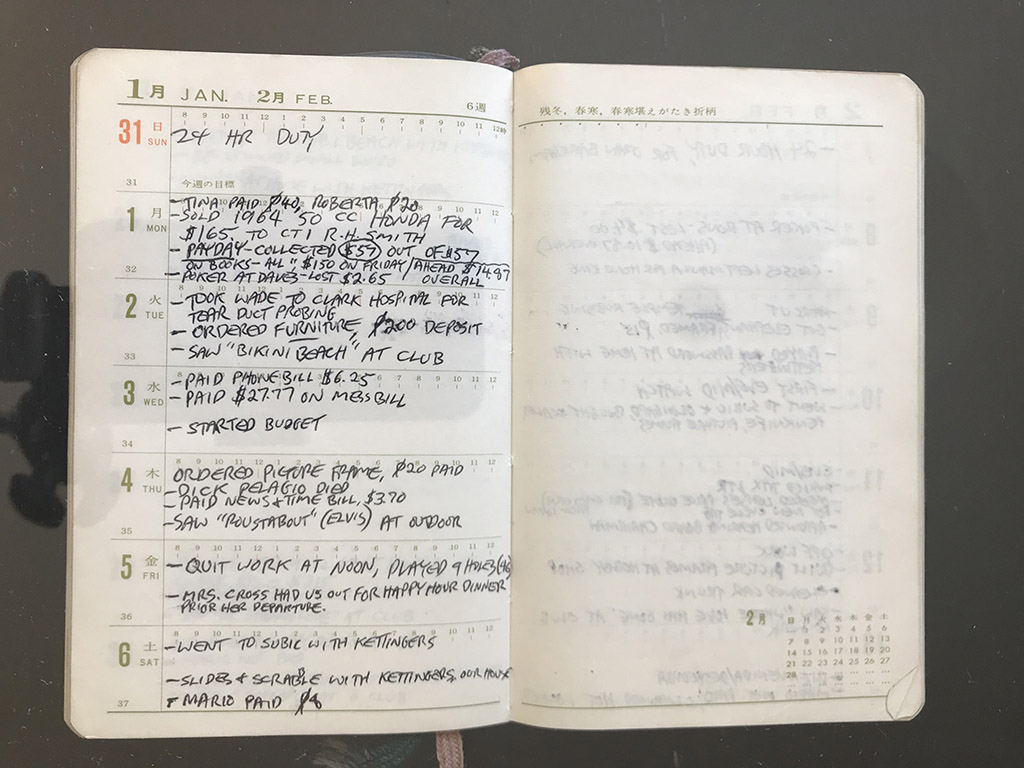 1月 JAN. 2月 FEB.
6週
8 9 10 11 12 1 2 3 4 5 6 7 8 9 10 11 12時
31 日 SUN
24 HR DUTY
31 今週の目標
1 月 MON
- TINA PAID $40, ROBERTA $20
- SOLD 1964 50 CC HONDA FOR
$165 TO CTI R.H. SMITH
- PAYDAY - COLLECTED ($57) OUT OF $57
ON BOOKS - ALL " $150 ON FRIDAY / AHEAD $14.87
- POKER AT DAVES - LOST $2.65 OVERALL
32
2 火 TUE
- TOOK WADE TO CLARK HOSPITAL FOR
TEAR DUCT PROBING
- ORDERED FURNITURE, $200 DEPOSIT
- SAW "BIKINI BEACH" AT CLUB
33
3 水 WED
- PAID PHONE BILL $6.25
- PAID $27.77 ON MESS BILL
- STARTED BUDGET
34
4 木 THU
ORDERED PICTURE FRAME, $20 PAID
- DICK PELAGIO DIED
- PAID NEWS & TIME BILL, $3.70
- SAW "ROUSTABOUT" (ELVIS) AT OUTDOOR
35
5 金 FRI
- QUIT WORK AT NOON, PLAYED 9 HOLES (46)
- MRS. CROSS HAD US OUT FOR HAPPY HOUR DINNER
PRIOR HER DEPARTURE.
36
6 土 SAT
- WENT TO SUBIC WITH KETTINGERS
- SLIDES & SCRABBLE WITH KETTINGERS, OUR HOUSE
- MARIO PAID $8
37
残冬，春寒，春寒堪えがたき折柄
2月
日 月 火 水 木 金 土
1 2 3 4 5 6
7 8 9 10 11 12 13
14 15 16 17 18 19 20
21 22 23 24 25 26 27
28